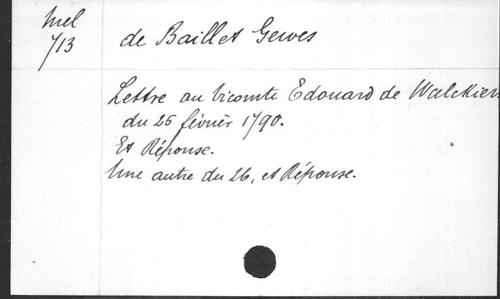 Mel
713
de Baillet Gewes
Lettre au vicomte Edouard de Walckiers
du 25 février 1790.
Et Réponse.
Une autre du 26, et Réponse.